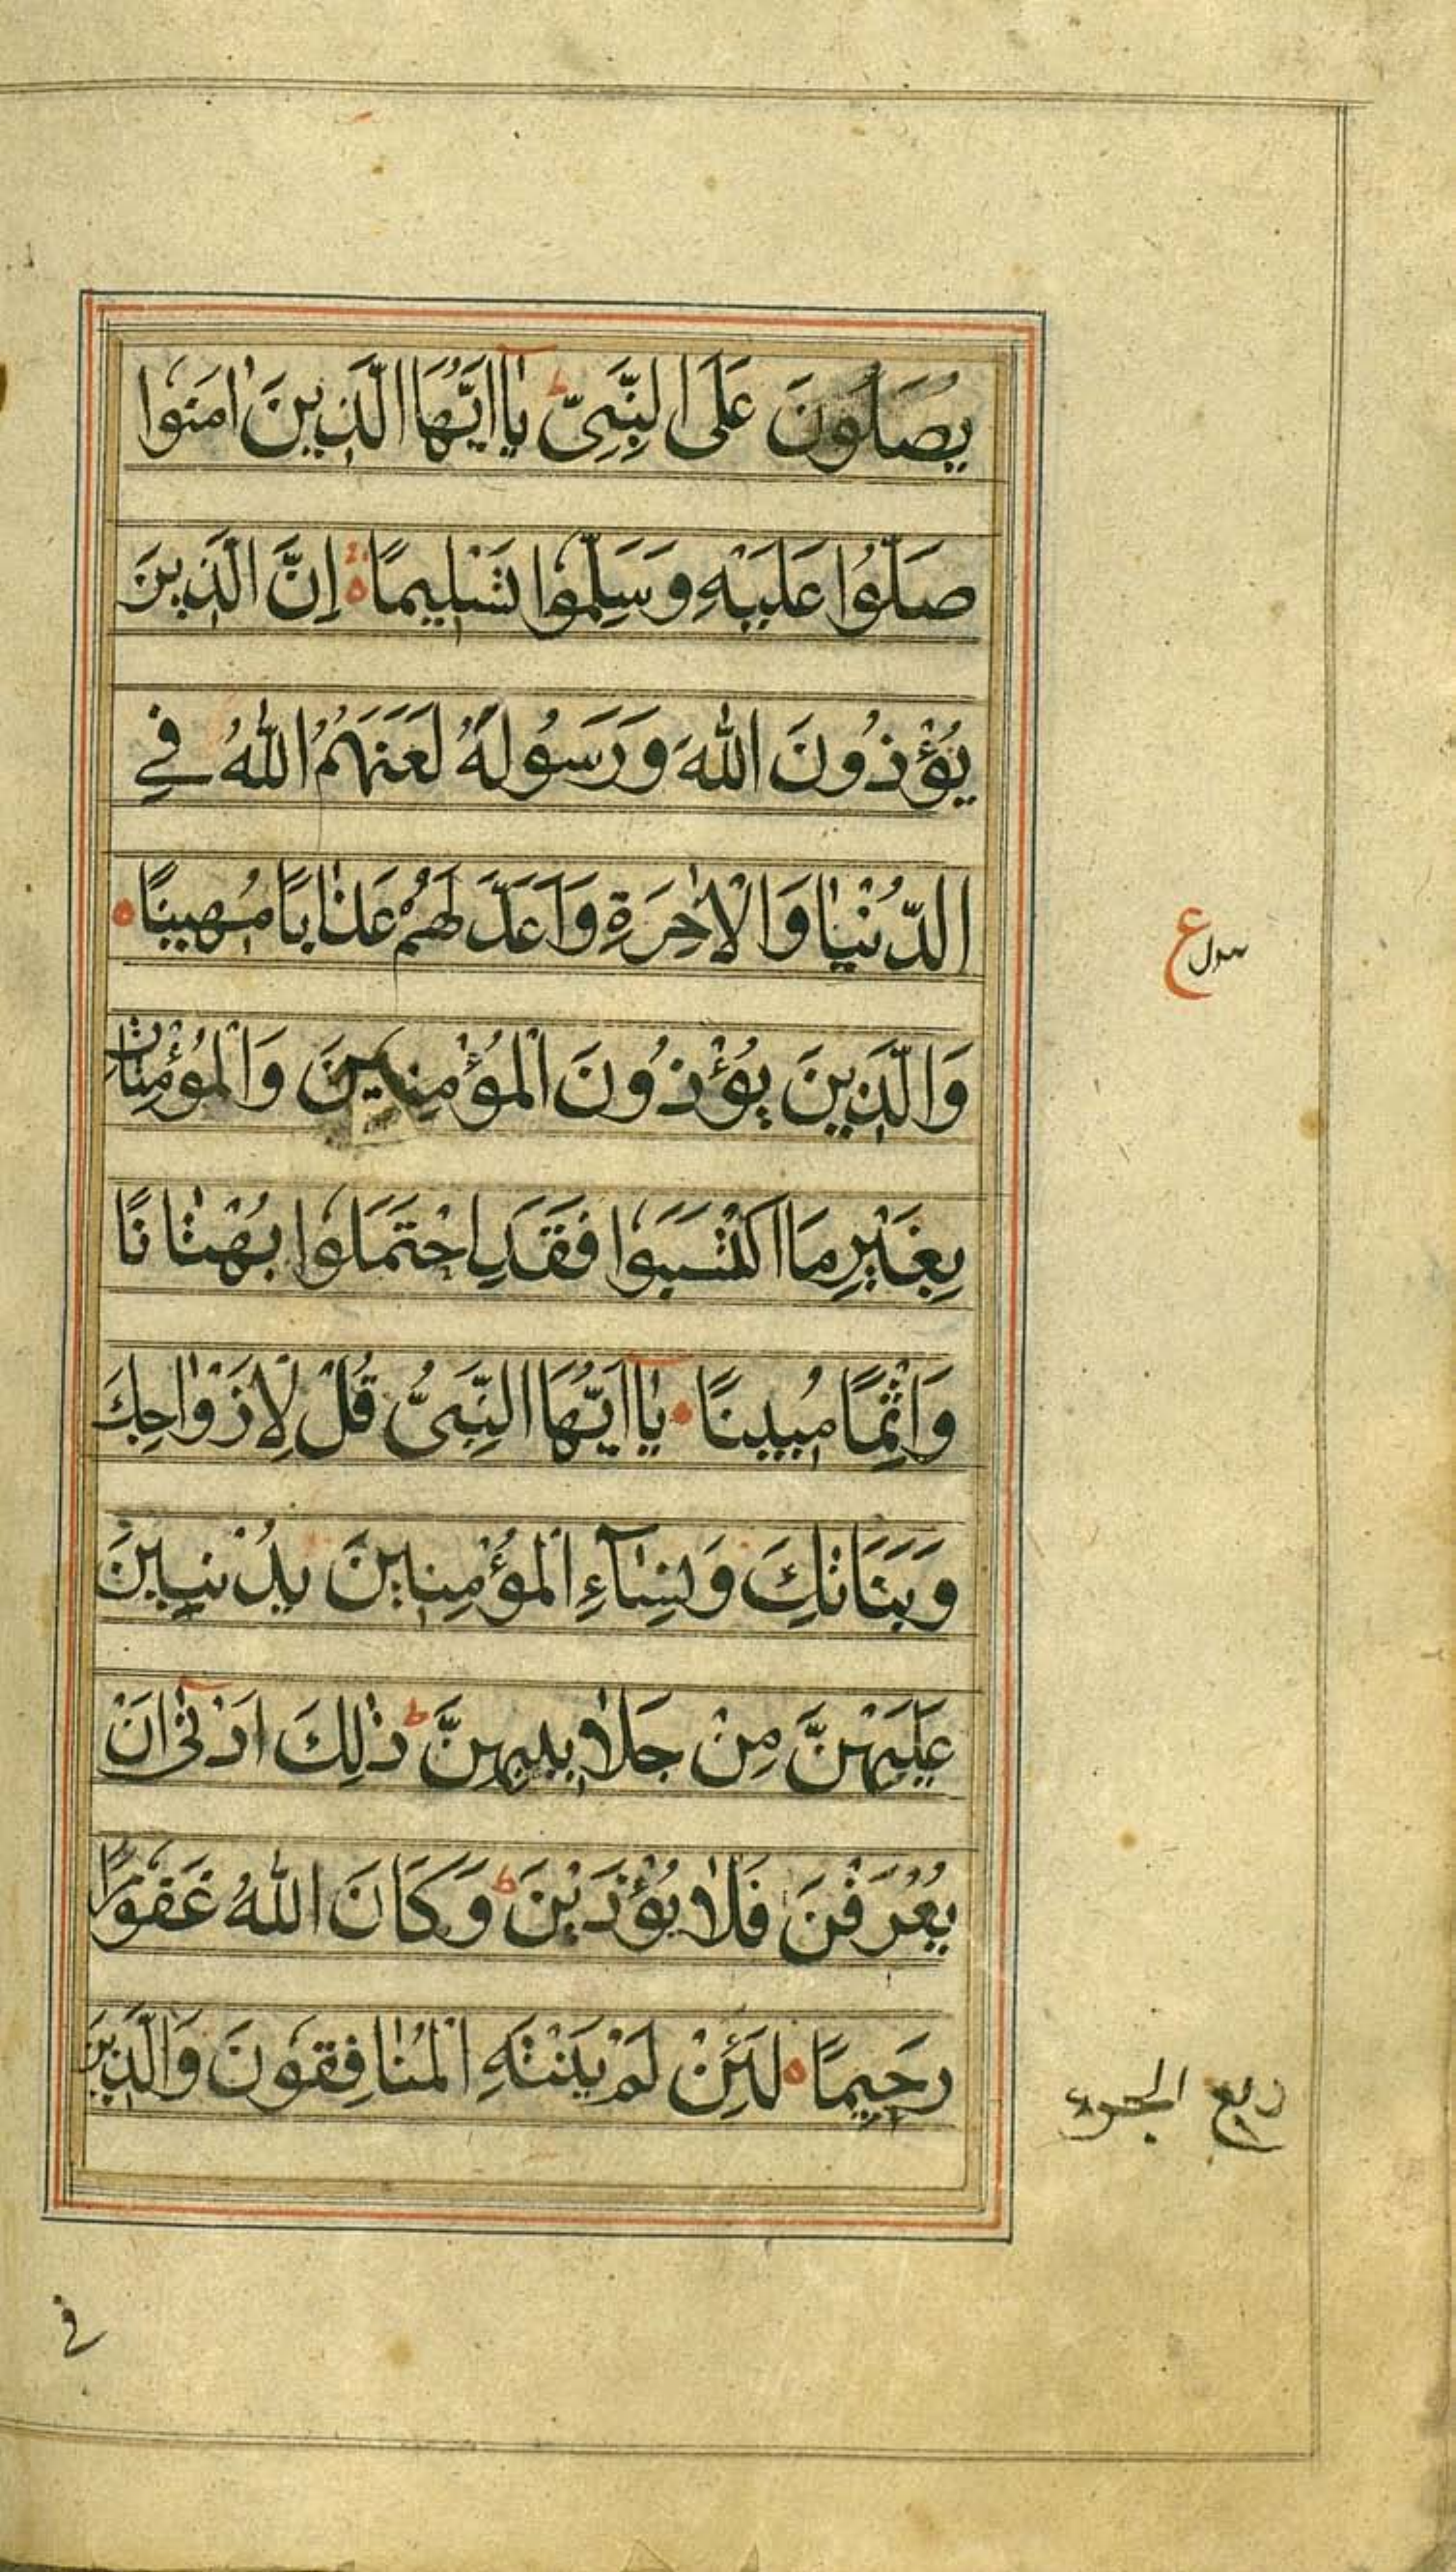 يُصَلُّونَ عَلَى النَّبِىِّ ط يٰٓااَيُّهَا الَّذِينَ اٰمَنُوا
صَلُّوا عَلَيْهِ وَسَلِّمُوا تَسْلِيمًا ه اِنَّ الَّذِينَ
يُؤْذُونَ اللّٰهَ وَرَسُولَهُ لَعَنَهُمُ اللّٰهُ فِي
الدُّنْيٰا وَالْاٰخِرَةِ وَاَعَدَّ لَهُمْ عَذٰابًا مُهِينًا ه
وَالَّذِينَ يُؤْذُونَ الْمُؤْمِنِينَ وَالْمُؤْمِنٰاتِ
بِغَيْرِ مَا اكْتَسَبُوا فَقَدِ احْتَمَلُوا بُهْتٰانًا
وَاِثْمًا مُبِينًا ه يٰٓااَيُّهَا النَّبِىُّ قُلْ لِاَزْوٰاجِكَ
وَبَنَاتِكَ وَنِسٰآءِ الْمُؤْمِنِينَ يُدْنِينَ
عَلَيْهِنَّ مِنْ جَلٰابِيبِهِنَّ ط ذٰلِكَ اَدْنٰٓى اَنْ
يُعْرَفْنَ فَلٰا يُؤْذَيْنَ ط وَكَانَ اللّٰهُ غَفُورًا
رَحِيمًا ه لَئِنْ لَمْ يَنْتَهِ الْمُنٰافِقُونَ وَالَّذِينَ
ع
ربع الجزء
في